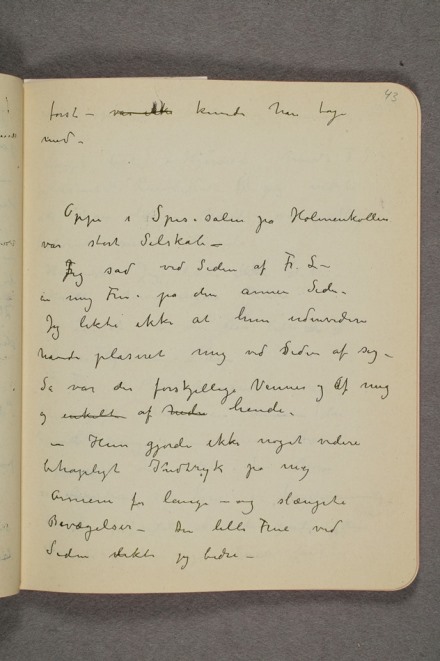 43
først – var ikke kunde han tage
med –
Oppe i Spisesalen paa Holmenkollen
var stort Selskab –
Jeg sad ved Siden af Fr. L –
en ung Frue paa den anden Side.
Jeg likte ikke at hun udenvidere
havde plaseret mig ved Siden af sig –
Så var der forskjellige Venner af mig
og enkelte af hende.
– Hun gjorde ikke noget videre
behageligt Indtryk på mig
Armene for lange – og slængete
Bevægelser – Den lille Frue ved
Siden likte jeg bedre –